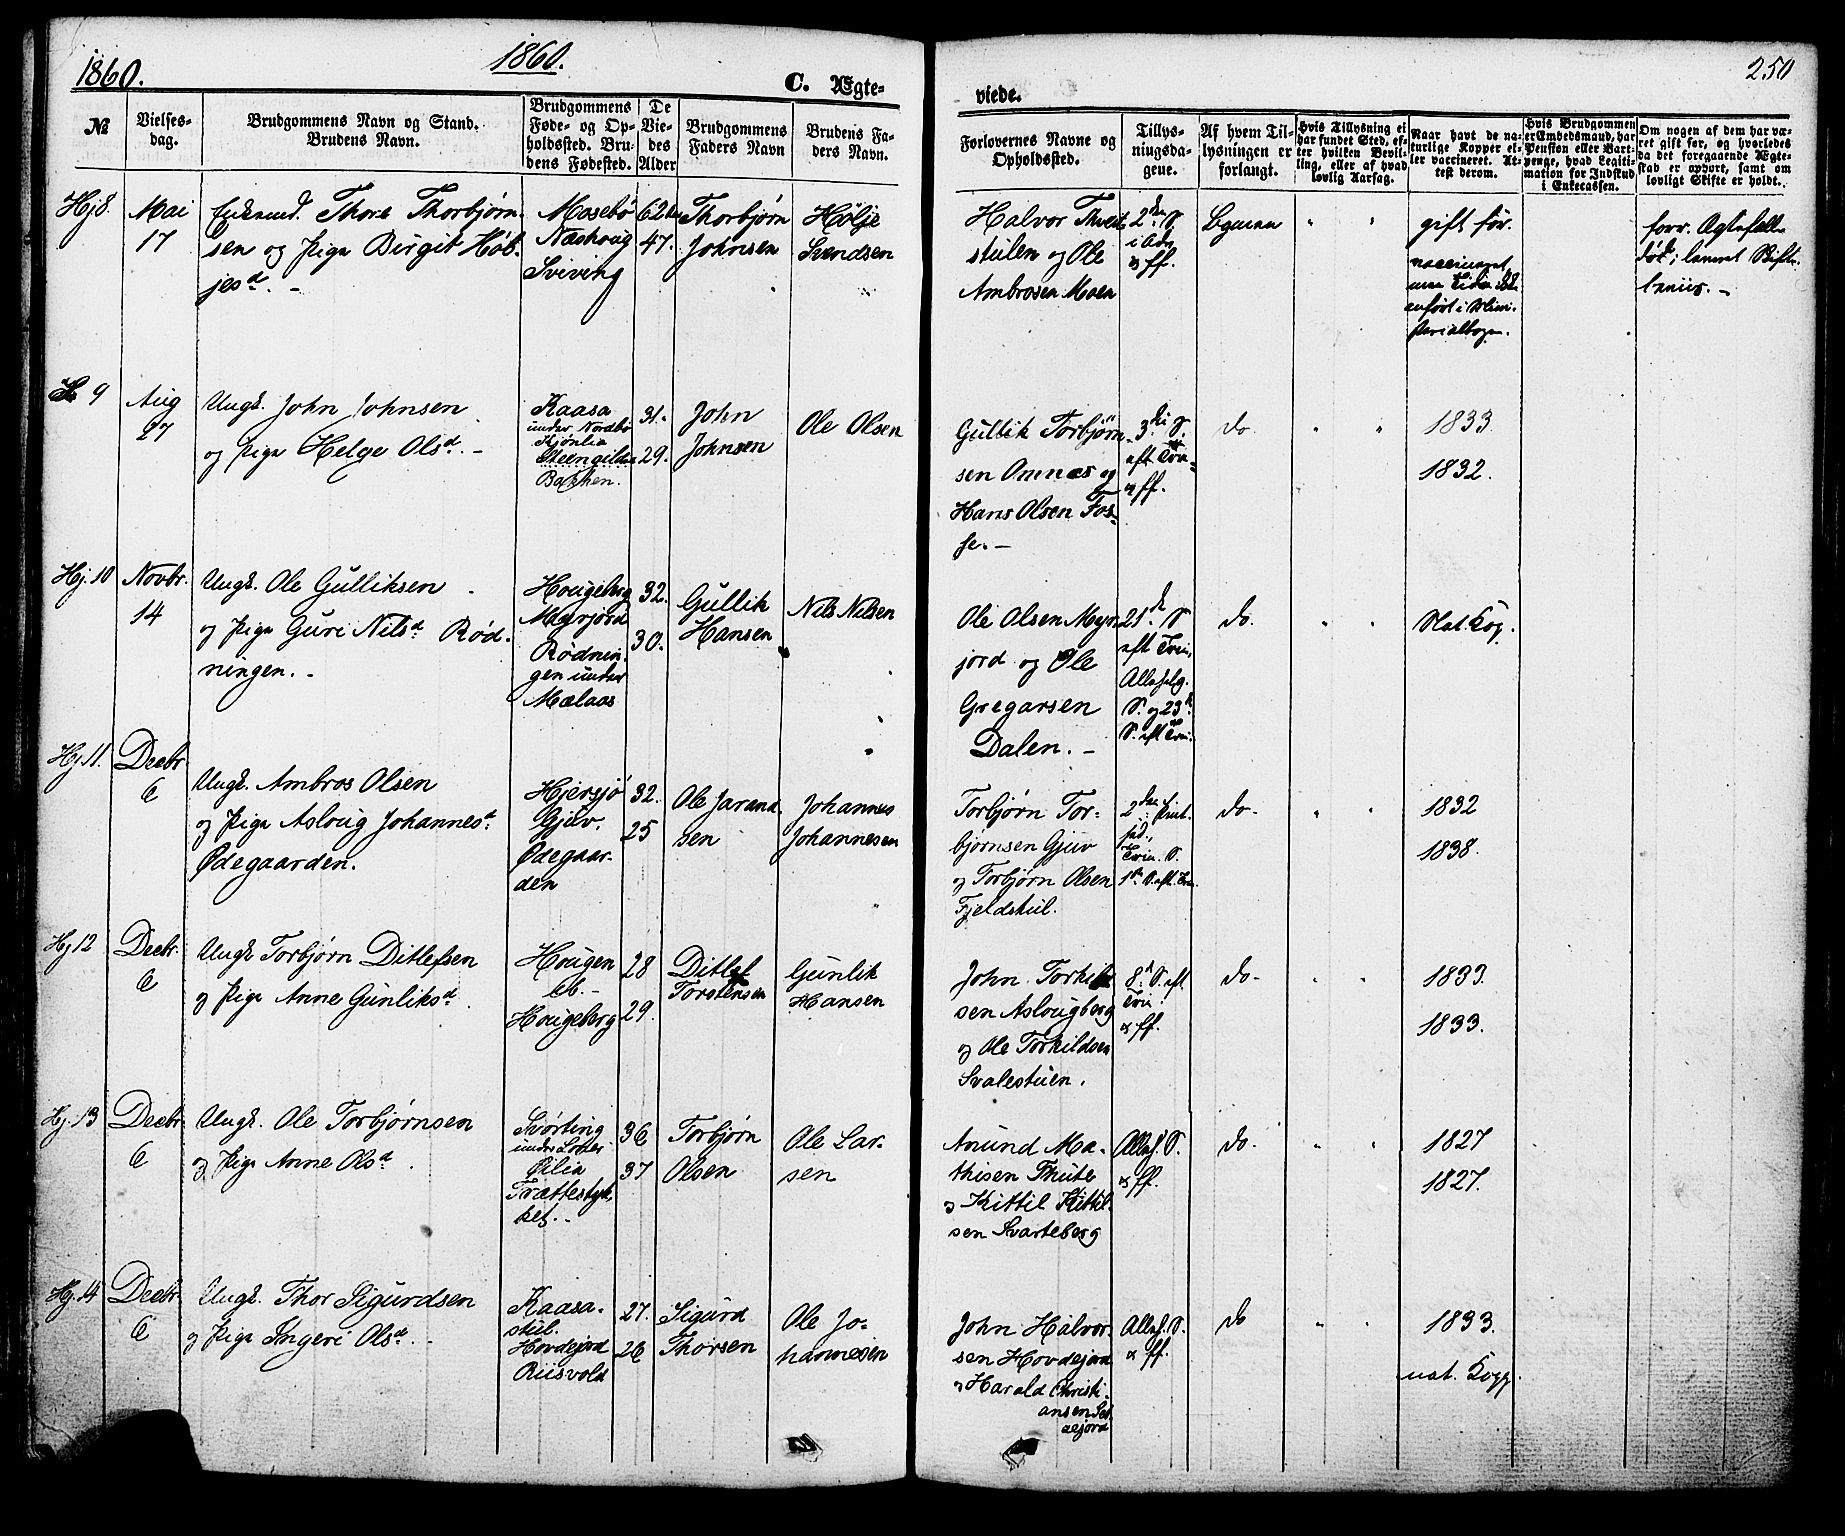 1860.
1860.
C. Ægte-
viede.
250
№
Vielses-
dag.
Brudgommens Navn og Stand.
Brudens Navn.
Brudgommens
Føde- og Op-
holdssted. Bru-
dens Fødested.
De
Vie-
des
Alder
Brudgommens
Faders Navn
Brudens Fa-
ders Navn.
Forlovernes Navne og
Opholdssted.
Tillys-
ningsda-
gene.
Af hvem Til-
lysningen er
forlangt.
Hvis Tillysning ei
har fundet Sted, ef-
ter hvilken Bevil-
ling, eller af hvad
lovlig Aarsag.
Naar havt de na-
turlige Kopper el-
ler vaccineret. At-
test derom.
Hvis Brudgommen
er Embedsmand, har
Pension eller Vart-
penge, hvad Legiti-
mation for Indskud
i Enkecassen.
Om nogen af dem har væ-
ret gift før, og hvorledes
da det foregaaende Ægte-
skab er ophørt, samt om
lovligt Skifte er holdt.
Hj 8.
Mai
17
Enkemd. Thore Thorbjørn-
sen og Pige Birgit Høl-
jesd. -
Mosebø
Næshoug
Sviving
62
47.
Thorbjørn
Johnsen
Hølje
Svendsen
Halvor Thvedt-
stulen og Ole
Ambrosen Moen
2den S.
i Adv
& ff.
Bgmen
" "
gift før.
forr. Ægtefælle
død;
9
Aug
27
Ungk. John Johnsen
og Pige Helge Olsd. -
Kaasa
under Nordbø
Kjønlia
Steengilde
Bakken.
31.
29.
John
Johnsen
Ole Olsen
Gullik Torbjørn-
sen Omnæs og
Hans Olsen Fos-
se. -
3die S.
aft Tri-
& ff.
do.
" "
1833
1832.
Hj. 10
Novbr.
14
Ungk. Ole Gulliksen
og Pige Guri Nilsd. Rød-
ningen. -
Hougeberg
Myrjord
Rødnin-
gen under
Mælaas
32.
30.
Gullik
Hansen
Nils Nilsen
Ole Olsen Myr-
jord og Ole
Gregarsen
Dalen. -
21d. S
aft Trin,
Allehelg.
S. og 23d.
S. aft Trin.
do.
" "
Nat. Kop.
Hj. 11.
Decbr
6
Ungk. Ambros Olsen
og Pige Asloug Johannesd.
Ødegaarden.
Hjersjø
Gjuv.
Ødegaar-
den
32.
25
Ole Jarand-
sen
Johannes
Johannesen
Torbjørn Tor-
bjørnsen Gjuv
og Torbjørn Olsen
Fjeldstul.
2den
Trin. S.
1ste S. aft. Trin.
do.
" "
1832
1838.
Hj 12
Decbr.
6
Ungk Torbjørn Ditlefsen
og Pige Anne Gunliksd.
Hougen
eb. -
Hougeberg
28
29.
Ditlef
Torstensen
Gunlik
Hansen
John Torkild-
sen Aslougberg
og Ole Torkildsen
Svalestuen.
8d S. aft.
Trin.
& ff.
do.
" "
1833.
1833.
Hj. 13
Decbr.
6
Ungk. Ole Torbjørnsen
og Pige Anne Olsd.
Svørting
Ølia
Trættestyk-
ket. -
36
37
Torbjørn
Olsen
Ole Lar-
sen
Anund Ma-
thisen Thute
og Kittil Kittil-
sen Svarteberg
Alleh. S.
& ff.
do.
" "
1827
1827.
Hj. 14
Decbr.
6
Ungk. Thor Sigurdsen
og Pige Ingeri Olsd. -
Kaasa-
stul.
Hovdejord
Riisvold
27.
26
Sigurd
Thorsen
Ole Jo-
hannesen
John Halvor-
sen Hovdejord
og Harald Christi-
ansen Sel-
aejord
Alleh. S.
& ff.
do
" "
1833.
nat. Kopp.